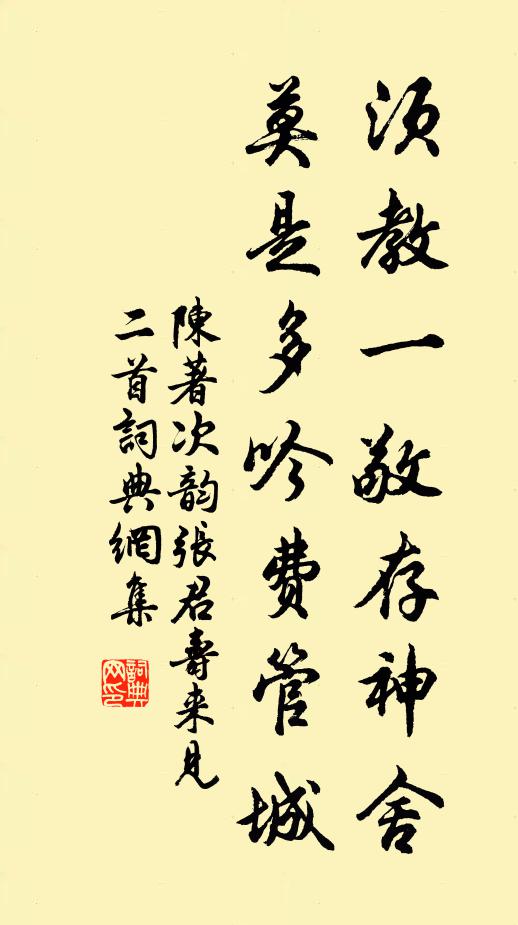 须教一敬存神舍
莫是多吟费管城
陳著次韵張君壽来見
二首詞典網集
詞典网印